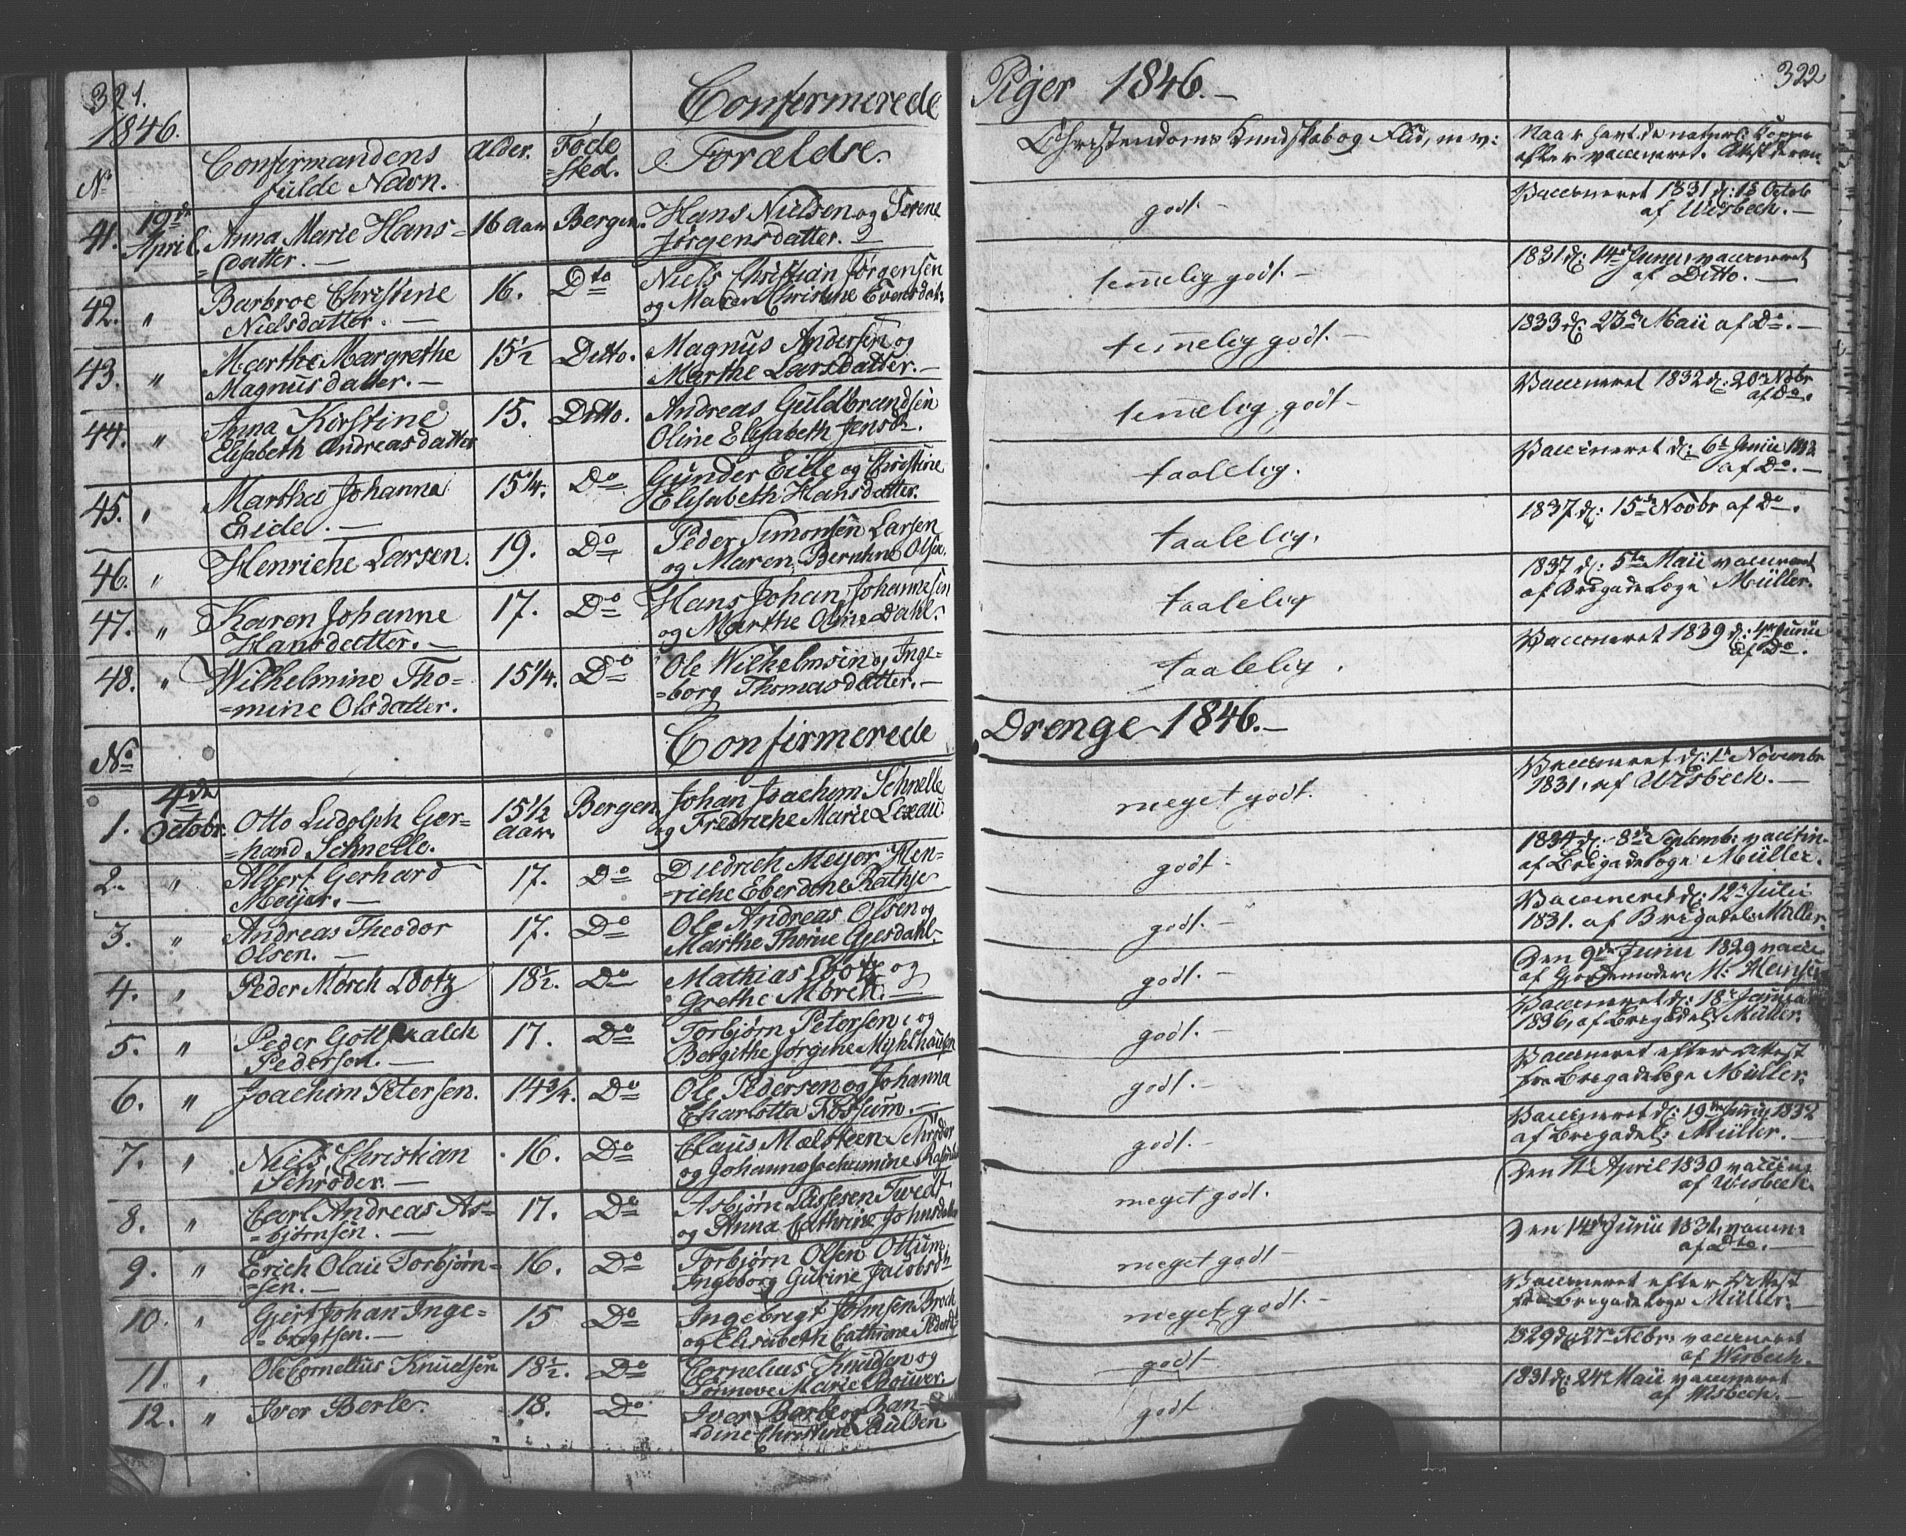 321.
Confirmerede Piger 1846.
322
1846.
No
Confirmandens fulde Navn.
Alder.
Føde sted.
Forældre.
Christendoms Kundskab og Flid, m. v:
41. 19de April Anna Marie Hans= 16 Aar Bergen. Hans Nielsen og Serene godt. Vaccineret 1831 d: 13 Octob
=datter. Jørgensdatter. af Wisbech.
42. " Barbroe Christine 16. Dto Niels Christian Jørgensen temelig godt. 1831 d: 14de Junii vaccineret
Nielsdatter. og Maren Christine Evensdatr af Ditto.
43. " Marthe Margrethe 15½ Ditto. Magnus Andersen og temelig godt. 1833 d: 23de Maii af Do.
Magnusdatter. Marthe Larsdatter.
44. " Anna Kirstine 15. Ditto. Andreas Guldbrandsen temelig godt Vaccineret 1832 d: 20de Nobr
Elisabeth Andreasdatter Oline Elisabeth Jensdr. af Do.
45. " Martha Johanna 15¼. Do Gunder Eide og Christine taalelig. Vaccineret d: 6te Junii
Eide. Elisabeth Hansdatter. af Do.
46. " Henriche Larsen. 19. Do Peder Simonsen Larsen taalelig. 1837 d: 15de Novbr af Do.
og Maren Bernhne Olsen.
47. " Karen Johanne 17. Do Hans Johan Johannesen taalelig 1837 d: 5te Maii vaccineret
Hansdatter. og Marthe Oline Dahl. af Brigadelæge Müller.
48. " Wilhelmine Tho= 15¼. Do Ole Wilhelmsen og Inge= taalelig. Vaccineret 1839 d: 4de Junii
=mine Olsdatter. =borg Thomasdatter. af Do.
No Confirmerede Drenge 1846.
1. 4de Octobr. Otto Ludolph Ger= 15½ Aar Bergen Johan Joachim Schnelle meget godt. Vaccineret d: 1te Novembr
=hard Schnelle. og Fredriche Marie Lexau 1831. af Wisbech.
2. " Albert Gerhard 17. Do Diedrich Meyer Hen= godt 1834 d: 8de Septembr vaccin=
Meijer. =riche Eberdine Rathje af Brigadelæge Müller.
3. " Andreas Theodor 17. Do Ole Andreas Olsen og godt. Vaccineret d: 12te Julii
Olsen. Marthe Thorine Gjesdahl. 1831. af Brigadel: Müller.
4. " Peder Mørch Lootz 18½. Do Mathias Lootz og godt. Den 9de Junii 1829 vacci=
Grethe Mørch. af Gjordemoder M:
5. " Peder Gottschalch 17. Do Torbjørn Petersen, og godt. Vaccineret d: 18de Januar
Pedersen. Bergithe Jørgine Myhlhausen 1836, af Brigadel: Müller.
6. " Joachim Petersen. 14¾. Do Ole Pedersen og Johanna godt. Vaccineret efter Attest
Charlotta Fossum. fra Brigadelæge Müller.
7. " Niels Christian 16. Do Claus Mælsteen Schrøder godt. Vaccineret d: 19de Junii 1832
Schrøder. og Johanna Jochumine af Brigadel: Müller.
8. " Carl Andreas As= 17. Do Asbjørn Lassesen Twedt meget godt. Den 11te April 1830 vaccin=
=bjørnsen. og Anna Cathrine Johnsdatter af Wisbech.
9. " Erich Olaii Torbjørn= 16. Do Torbjørn Olsen Ottum meget godt Den 14de Junii 1831, vaccin=
=sen. Ingeborg Gurine Jacobsdr af Dto.
10. " Gjert Johan Inge= 15 Do Ingebrigt Johnsen Broch meget godt. Vaccineret efter Attest
=brigtsen. og Elisabeth Cathrine fra Brigadelæge Müller.
11. " Ole Cornelius Knudsen 18½. Do Cornelius Knudsen og godt 1829 d: 27de Febr: vaccineret
Tønneve Marie Bouwer. af Wisbech.
12. " Iver Berle. 18. Do Iver Berle og Han= godt 1831 d: 24de Maii vaccineret
=dine Christine Paulsen af Wisbech.